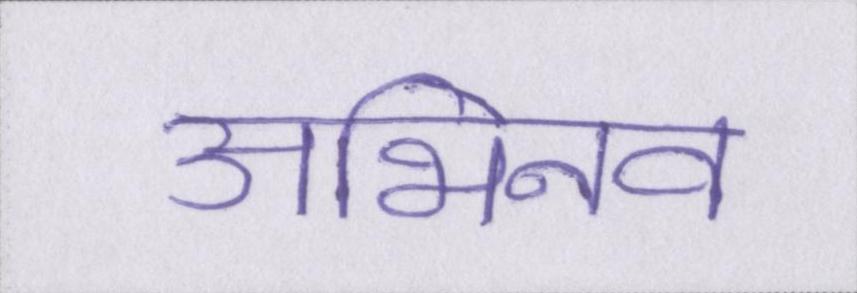 अभिनव